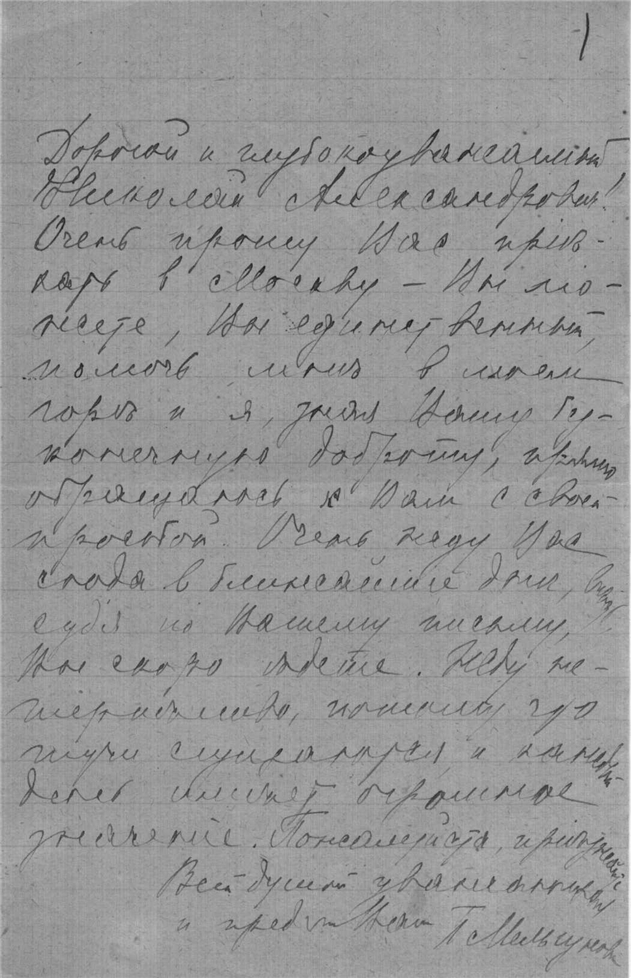 1
Дорогой и глубокоуважаемый
Николай Александрович!
Очень прошу Вас прiѣ-
хать в Москву – Вы мо-
жете, Вы единственный,
помочь мнѣ в моем
горѣ и я, зная Вашу бес-
конечную доброту, прямо
обращаюсь к Вам с своей
просьбой. Очень жду Вас
сюда в ближайшие дни,
судя по Вашему письму,
Вы скоро едете. Жду не-
терпѣливо, потому что
тучи сгущаются, и каждый
день имѣет огромное
значенiе. Пожалуйста, прiѣзжайте
Всей душой уважающая
и пред. Вам Т Мельгунова